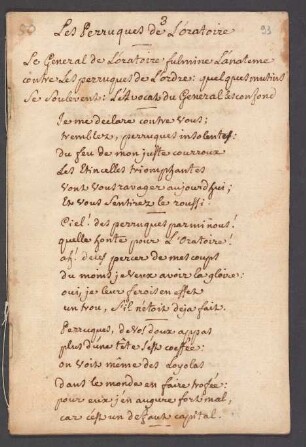 3
91
Les Perruques de L'oratoire
Le General de L'oratoire fulmine L'anateme
contre Les perruques de L'ordre: quelques mutins
Se soulevent: L'Avocat du General Les confond
Je me declare contre vous;
tremblez, perruques insolentes:
du feu de mon juste courroux
Les Etincelles triomphantes
vont vous ravager aujourd'hui;
Et vous sentirez le roussi.
Ciel! des perruques parmi nous!
quelle honte pour L'Oratoire!
ah! deussé percer de mes coups
du moins je veux avoir la gloire:
oui, je leur ferois en effet
un trou, s'il n'étoit deja fait.
Perruques, de vos doux appas
plus d'une tête s'est coeffée:
on voit même des Loyolas
dans le monde en faire trofée:
pour eux j'en augure fort mal,
car c'est un defaut capital.